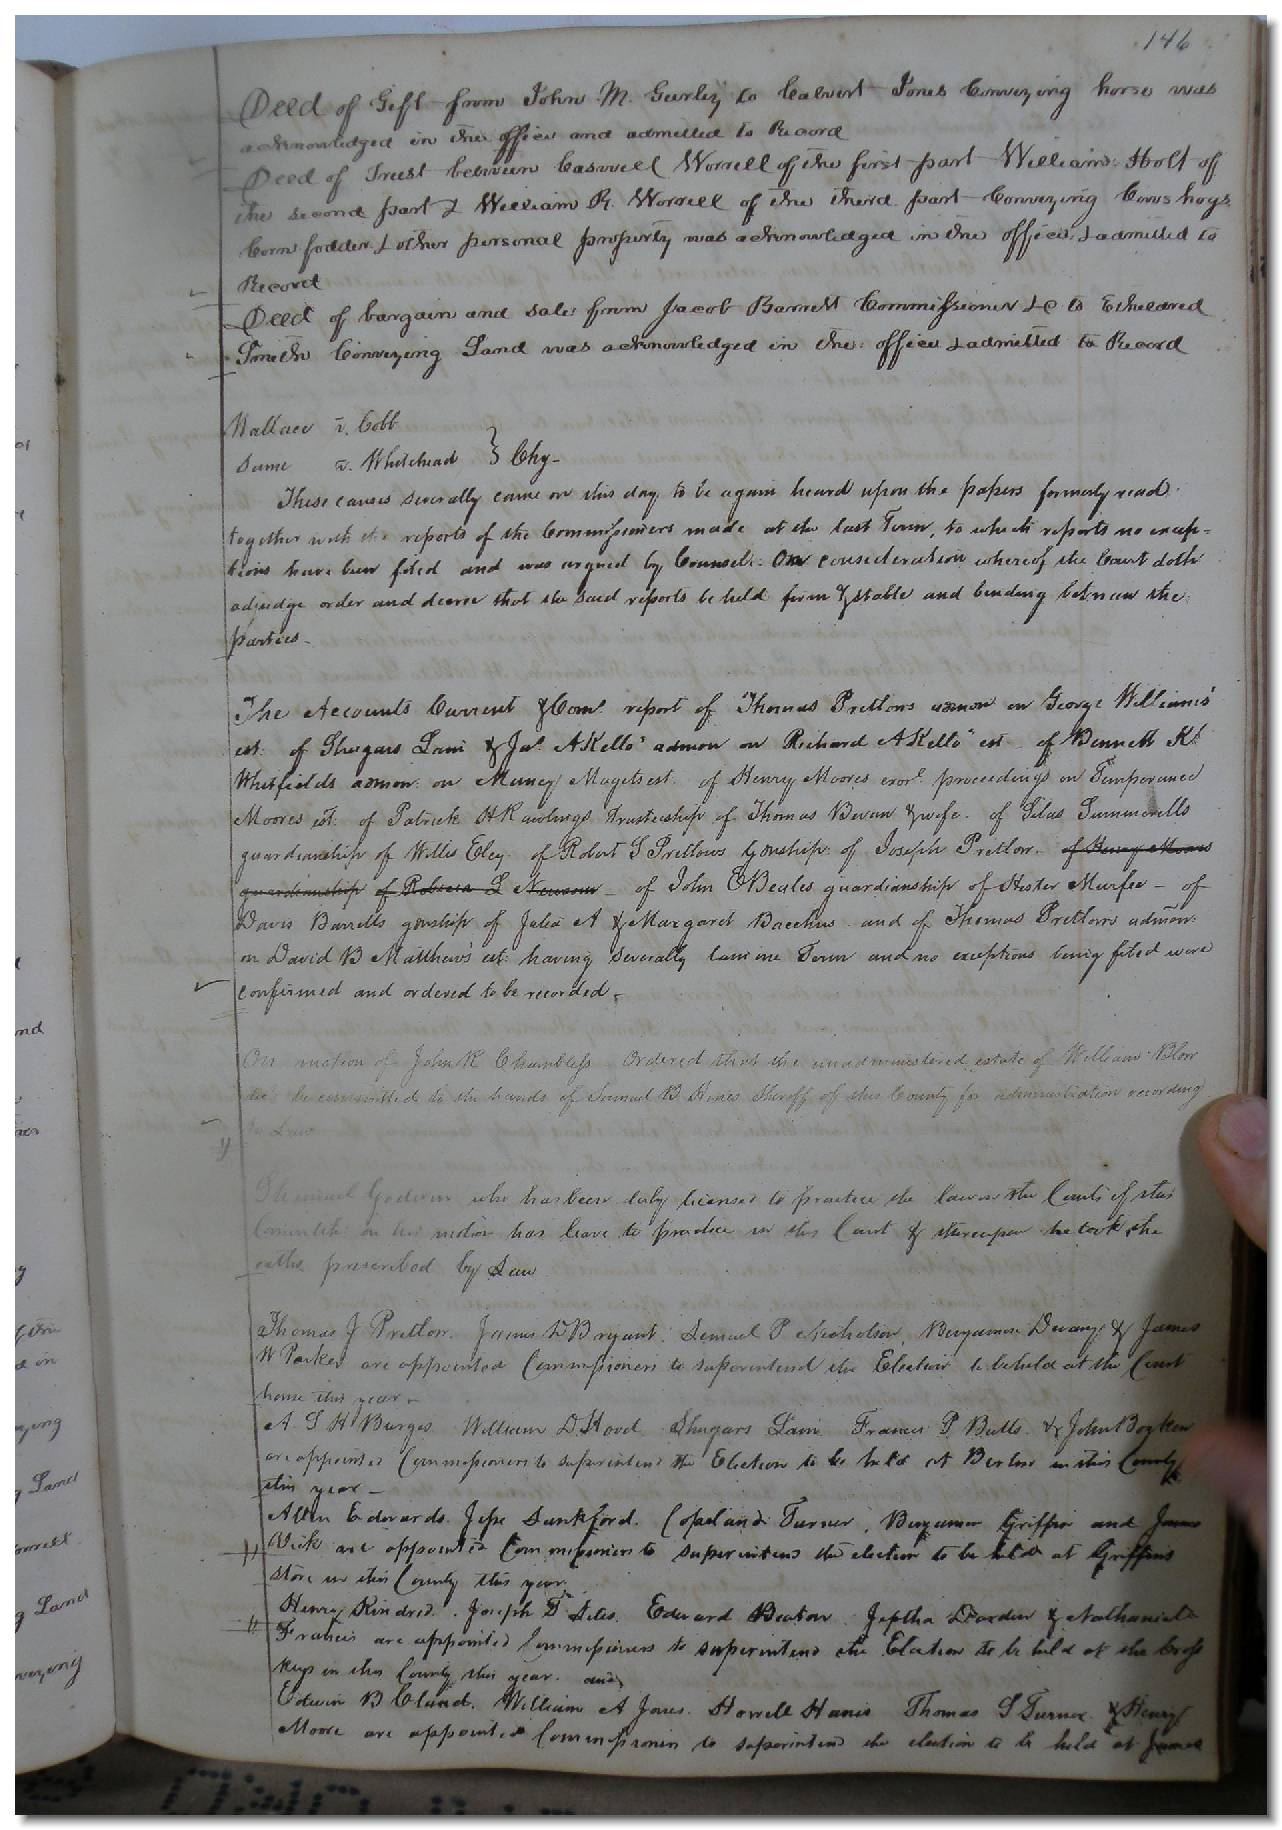 146
Deed of Gift from John M. Gurley to Calvert Jones Conveying horse was
acknowledged in the office and admitted to Record
Deed of Trust between Caswell Worrell of the first part William Holt of
the second part & William R. Worrell of the third part Conveying Cows hogs
Corn fodder & other personal property was acknowledged in the office & admitted to
Record
Deed of bargain and sale from Jacob Barrett Commissioner &c to Etheldred
Smith Conveying Land was acknowledged in the office & admitted to Record
Wallace v. Cobb
Same v. Whitehead } Chy-
These causes severally came on this day to be again heard upon the papers formerly read
together with the reports of the Commissioners made at the last Term, to which reports no excep-
tions have been filed and was argued by Counsel: On consideration whereof the Court doth
adjudge order and decree that the said reports be held firm & stable and binding between the
parties-
The Accounts Current & Coms. report of Thomas Pretlows admon on George Williams'
est. of Shugars Lain & Jas. AKells' admon on Richard AKells' est of Bennett K.
Whitfields admon. on Magets est. of Henry Moores exors. proceedings on Temperance
Moores est. of Patrick H Rawlings trusteeship of Thomas Bevan & wife. of Silas Summerells
guardianship of Willis Eley of Robert S Pretlows gdnship of Joseph Pretlow. of Henry Moores
guardianship of Rebecca L Newsom - of John OBeales guardianship of Hester Murfee - of
Davis Barretts gdnship of Julia A & Margaret Bacchus and of Thomas Pretlows admon.
on David B Matthews' est: having severally lain one Term and no exceptions being filed were
confirmed and ordered to be recorded.
On motion of John R Chambliss Ordered that the unadministered estate of William Blow
dec be committed to the hands of Samuel B Hines Sheriff of this County for administration according
to Law
Godwin who has been duly licensed to practice the law in the Courts of this
Commlth on his motion has leave to practice in this Court & thereupon he took the
oaths prescribed by Law
Thomas J Pretlow. James D Bryant. Samuel P Nicholson, Benjamin Devany & James
W Parker are appointed Commissioners to superintend the Election to be held at the Court
house this year.
A. S. H Burges William D. Hood Shugars Lain Francis P. Butts. & John Boykin
are appointed Commissioners to superintend the Election to be held at Berlin in this County
this year -
Allen Edwards. Jesse Lankford. Copeland Turner, Benjamin Griffin and James
Vick are appointed Commissioners to superintend the election to be held at Griffins
store in this County this year.
Henry Kindred. Joseph T. Edward Beaton Jeptha Darden & Nathaniel
Francis are appointed Commissioners to superintend the Election to be held at the Cross
keys in this County this year. and
Edwin B Claud. William A Jones. Howell Harris Thomas S Turner & Henry
Moore are appointed Commissioners to superintend the election to be held at James